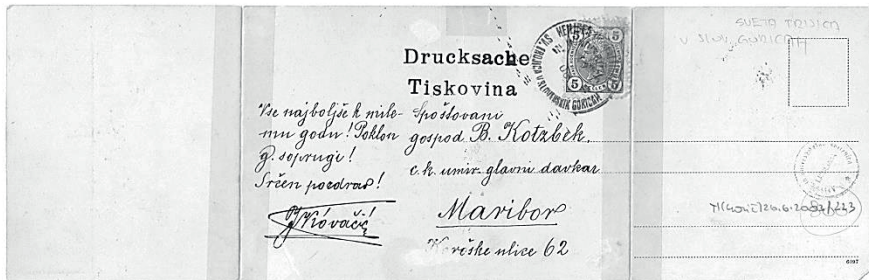 Drucksache
Tiskovina
Vse najboljše k milo-
mu godu! Poklon
g. soprugi!
Srčen pozdrav!
Kovačič
Spoštovani
gospod B. Kotzbek,
c. k. umir. glavni davkar
Maribor
Koroške ulice 62
SV. TROJICA V SLOVENSKIH GORICAH
5 5
5 5
SVETA TROJICA
V SLOV. GORICAH
6397